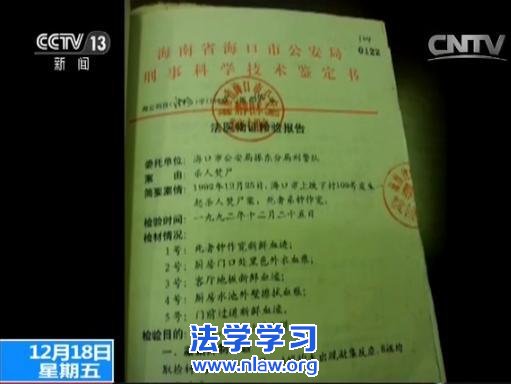 CCTV 13
新闻
CNTV
0122
海南省海口市公安局
刑事科学技术鉴定书
法医物证检验报告
委托单位：海口市公安局振东分局刑警队
案由 杀人焚尸
简要案情：1992年12月25日，海口市上坡下村109号发生
一起杀人焚尸案，死者系钟作宽。
检验时间：一九九二年十二月二十五日
检材情况：
1号：死者钟作宽新鲜血迹；
2号：厨房门口处黑色外衣血痕；
3号：客厅地板新鲜血迹；
4号：厨房水池外壁擦拭血痕；
5号：门前过道新鲜血迹。
检验目的：
一、
取检材
法学学习
www.nlaw.org
12月18日
星期五